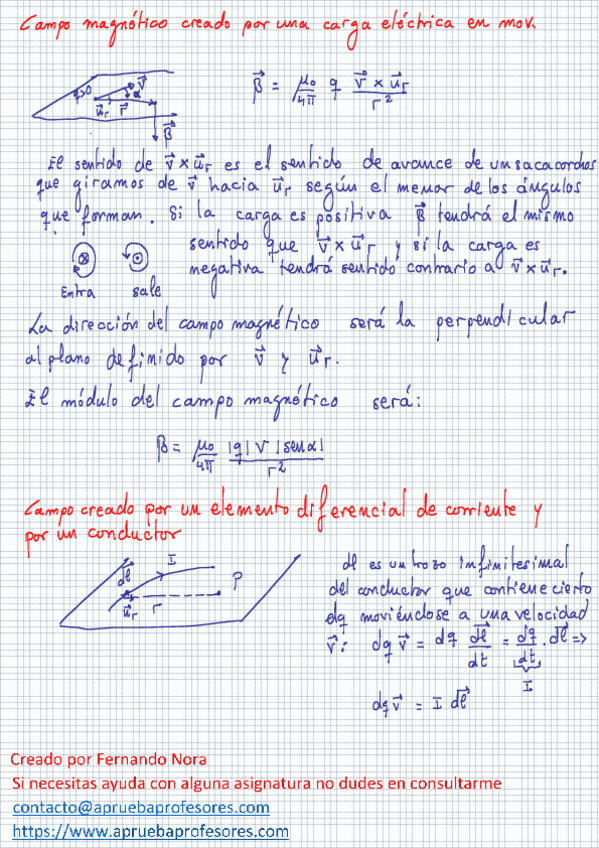 Campo magnético creado por una carga eléctrica en mov.
q>0 v⃗ α
u⃗r r⃗
B⃗
B⃗ = μo/4π q v⃗ × u⃗r / r²
El sentido de v⃗ × u⃗r es el sentido de avance de un sacacorchos
que giramos de v⃗ hacia u⃗r según el menor de los ángulos
que forman. Si la carga es positiva B⃗ tendrá el mismo
sentido que v⃗ × u⃗r y si la carga es
negativa tendrá sentido contrario a v⃗ × u⃗r.
Entra sale
La dirección del campo magnético será la perpendicular
al plano definido por v⃗ y u⃗r.
El módulo del campo magnético será:
B = μo/4π |q| v |sen α| / r²
Campo creado por un elemento diferencial de corriente y
por un conductor
dl⃗ I P
u⃗r r
dl es un trozo infinitesimal
del conductor que contiene cierto
dq moviéndose a una velocidad
v⃗: dq v⃗ = dq dl⃗/dt = dq/dt · dl⃗ =>
I
dq v⃗ = I dl⃗
Creado por Fernando Nora
Si necesitas ayuda con alguna asignatura no dudes en consultarme
contacto@apruebaprofesores.com
https://www.apruebaprofesores.com